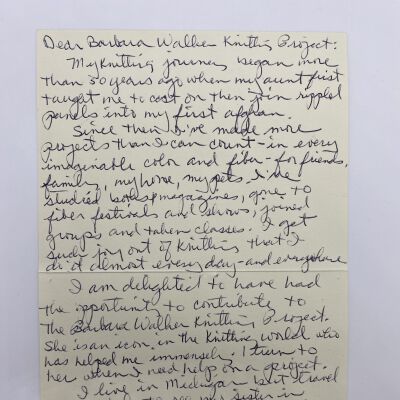 Dear Barbara Walker Knitting Project:
My knitting journey began more
than 50 years ago when my aunt first
taught me to cast on then join rippled
panels into my first afghan.
Since then I've made more
projects than I can count - in every
imaginable color and fiber - for friends,
family, my home, my pets. I've
studied books & magazines, gone to
fiber festivals and shows, joined
groups and taken classes. I get
such joy out of knitting that I
do it almost every day - and everywhere
I am delighted to have had
the opportunity to contribute to
the Barbara Walker Knitting Project.
She is an icon in the knitting world who
has helped me immensely. I turn to
her when I need help on a project.
I live in Michigan but travel
to see my sister in